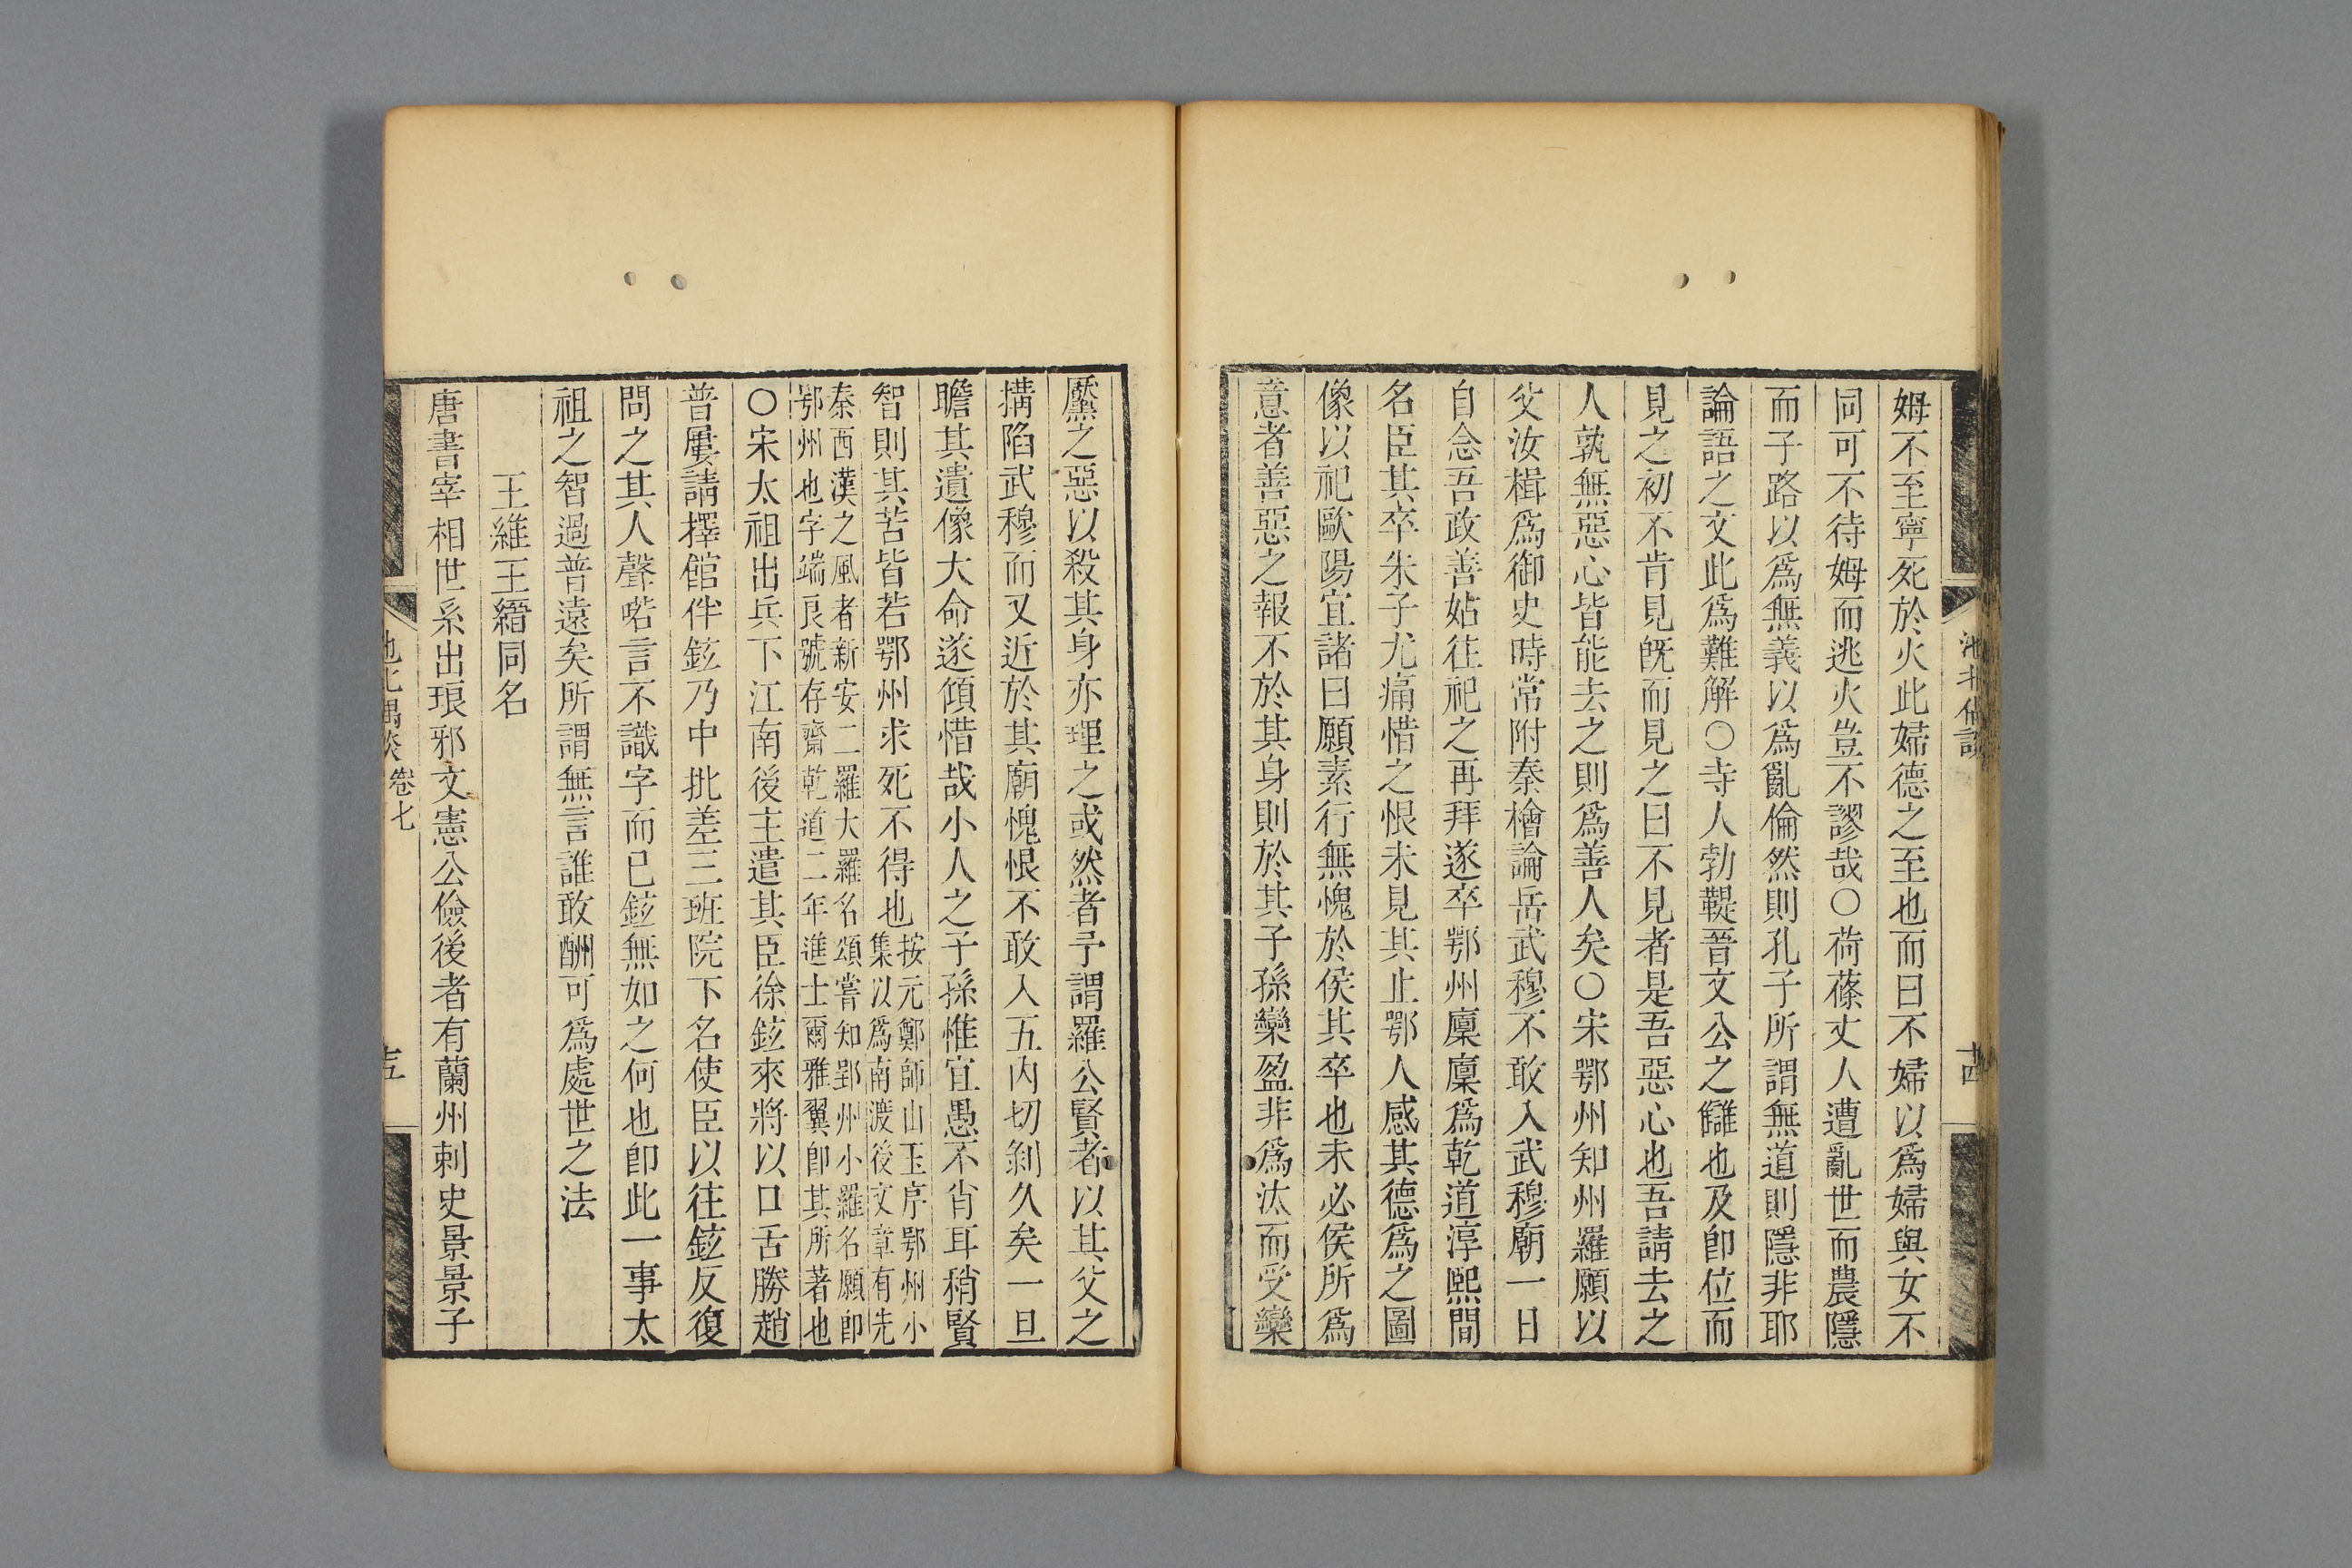 姆不至寧死於火此婦德之至也而曰不婦以爲婦與女不
同可不待姆而逃火豈不謬哉○荷蓧丈人遭亂世而農隱
而子路以爲無義以爲亂倫然則孔子所謂無道則隱非耶
論語之文此爲難解○寺人勃鞮晉文公之讎也及卽位而
見之初不肯見旣而見之曰不見者是吾惡心也吾請去之
人孰無惡心皆能去之則爲善人矣○宋鄂州知州羅願以
父汝楫爲御史時常附秦檜論岳武穆不敢入武穆廟一日
自念吾政善姑往祀之再拜遂卒鄂州廩廩爲乾道淳熙間
名臣其卒朱子尤痛惜之恨未見其止鄂人感其德爲之圖
像以祀歐陽宜諸曰願素行無愧於侯其卒也未必侯所爲
意者善惡之報不於其身則於其子孫欒盈非爲汰而受欒
黶之惡以殺其身亦理之或然者予謂羅公賢者以其父之
搆陷武穆而又近於其廟愧恨不敢入五内切剡久矣一旦
瞻其遺像大命遂傾惜哉小人之子孫惟宜愚不肖耳稍賢
智則其苦皆若鄂州求死不得也
按元鄭師山玉序鄂州小
集以爲南渡後文章有先
秦西漢之風者新安二羅大羅名頌嘗知郢州小羅名願卽
鄂州也字端良號存齋乾道二年進士爾雅翼卽其所著也
○宋太祖出兵下江南後主遣其臣徐鉉來將以口舌勝趙
普屢請擇館伴鉉乃中批差三班院下名使臣以往鉉反復
問之其人聲喏言不識字而已鉉無如之何也卽此一事太
祖之智過普遠矣所謂無言誰敢酬可爲處世之法
王維王縉同名
唐書宰相世系出琅邪文憲公儉後者有蘭州刺史景景子
卷七